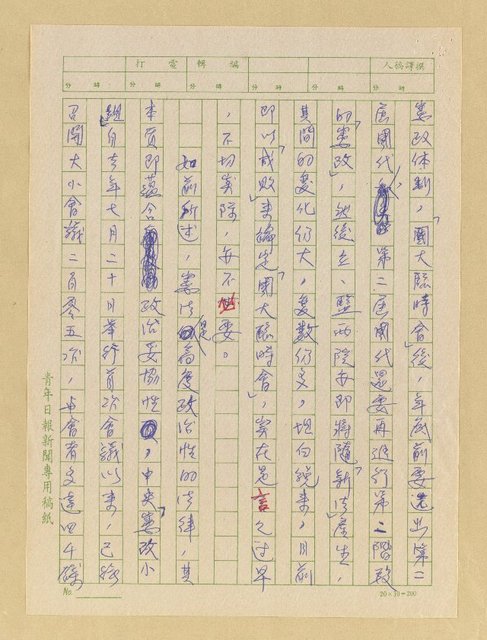 人稿譯撰
輯編
電打
分 時
分 時
分 時
分 時
憲政体制,「國大臨時會」後,年底前要選出第二
屆國代,第二屆國代還要再進行第二階段
的「憲政」,然後立、監兩院亦即將隨「新法」產生,
其間的變化仍大,變數仍多,坦白說來,目前
即以「成敗」來論定「國大臨時會」,實在是言之過早
,不切實際,亦不妥。
如前所述,憲法是高度政治性的法律,其
本質即蘊含政治妥協性,中央「憲改小
組」自去年七月二十日舉行首次會議以來,已經
召開大小會議二百零五次,與會者多達四千
青年日報新聞專用稿紙
No.
20×10=200